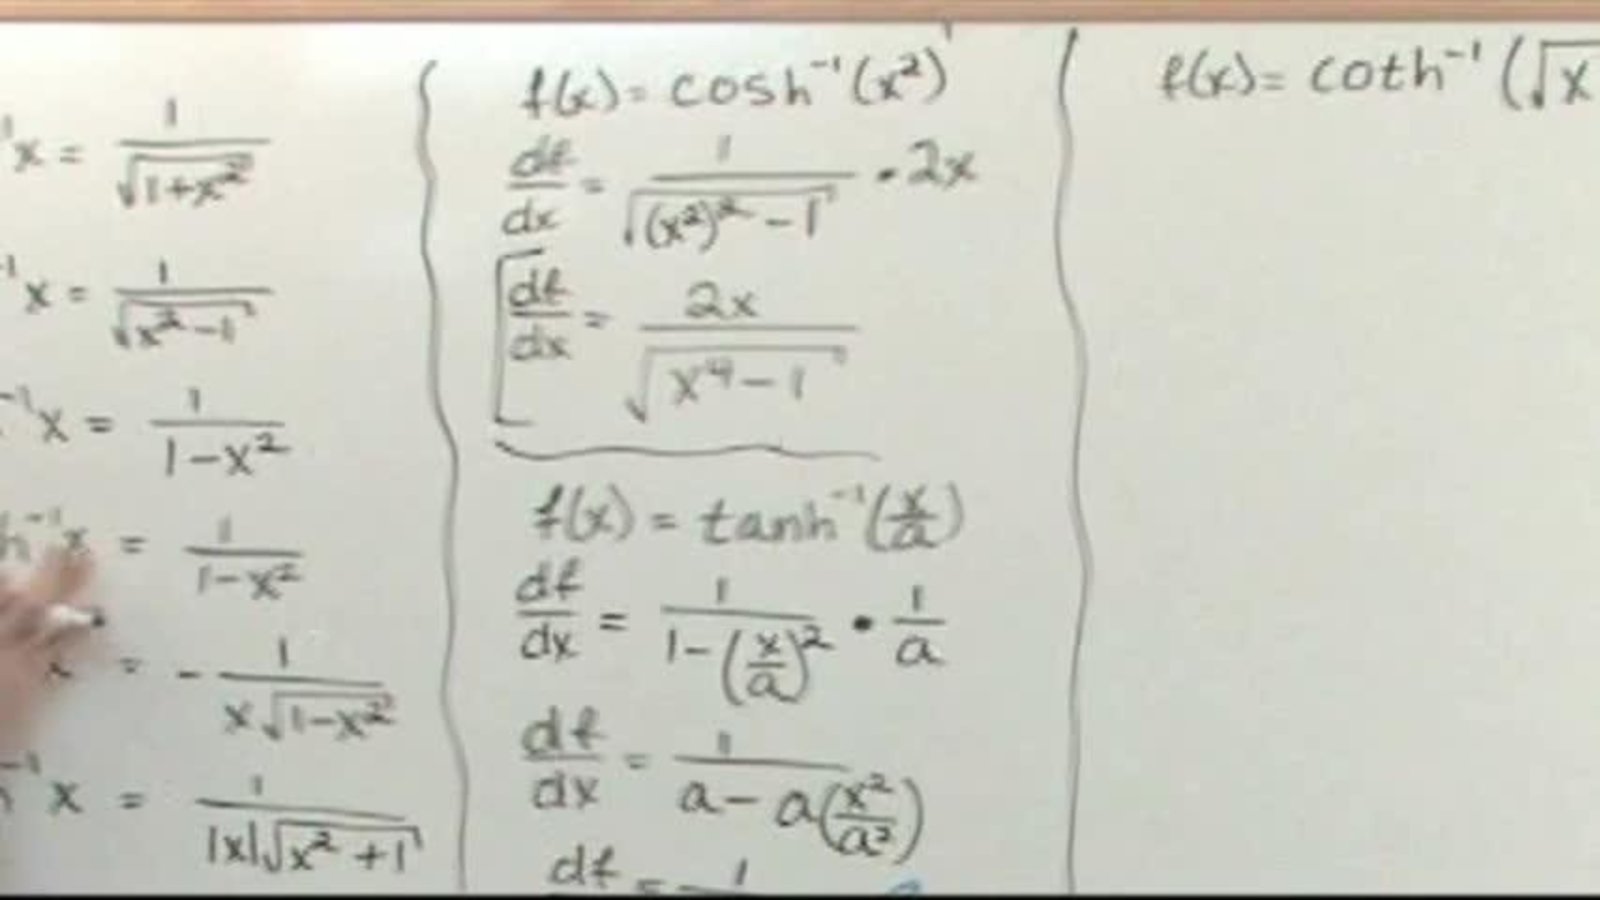 ⁻¹x = 1/√(1+x²)
⁻¹x = 1/√(x²-1)
⁻¹x = 1/(1-x²)
h⁻¹x = 1/(1-x²)
= - 1/(x√(1-x²))
⁻¹x = 1/(|x|√(x²+1))
f(x) = cosh⁻¹(x²)
df/dx = 1/√((x²)²-1) · 2x
df/dx = 2x/√(x⁴-1)
f(x) = tanh⁻¹(x/a)
df/dx = 1/(1-(x/a)²) · 1/a
df/dx = 1/(a-a(x²/a²))
df = 1
f(x) = coth⁻¹(√x